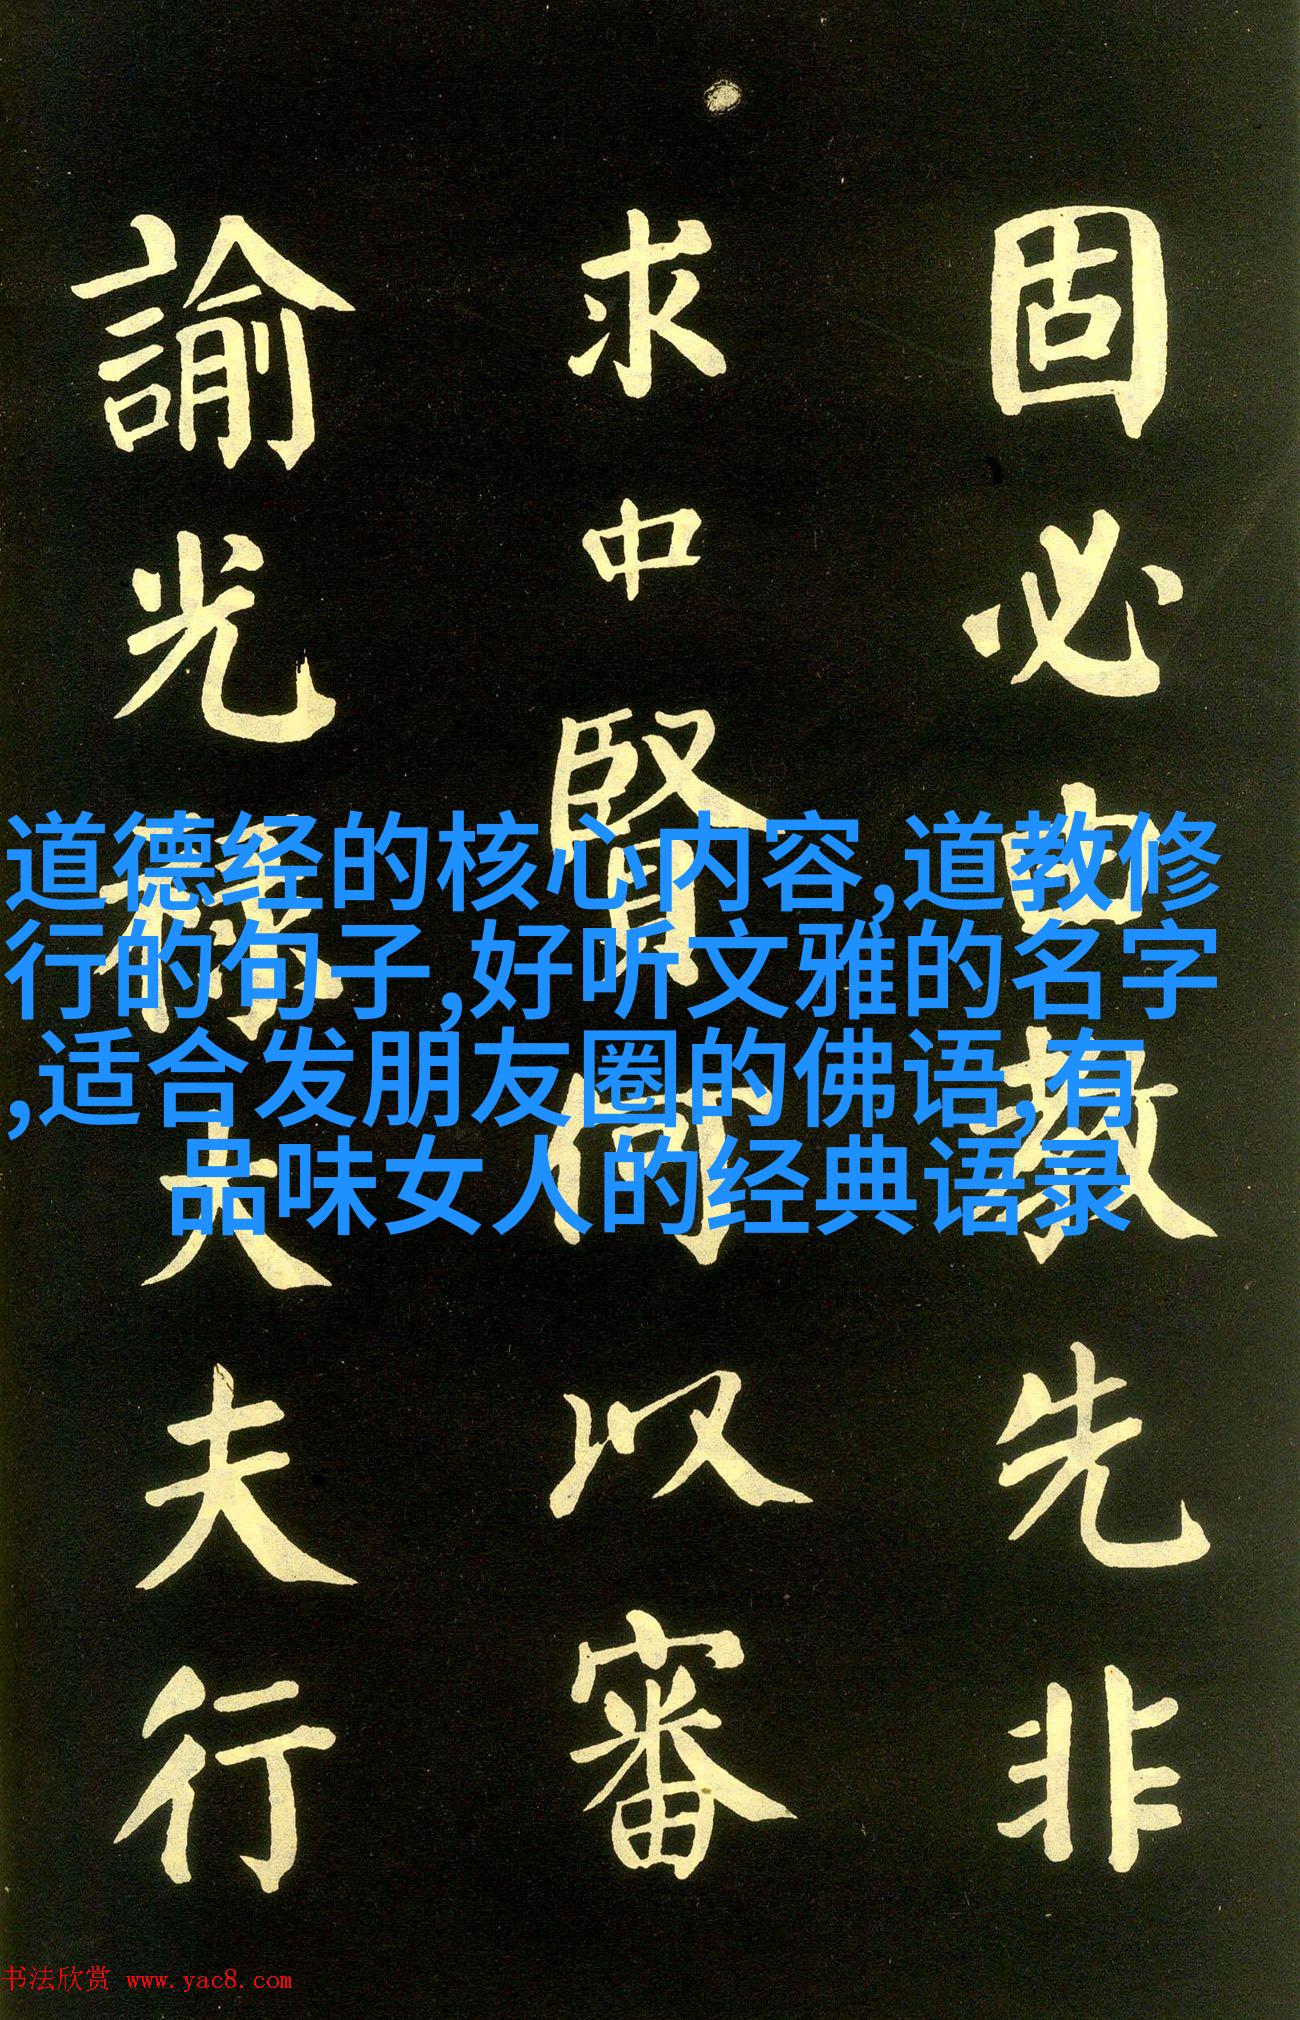 固必由教先非
求中賢何以審
諭光祿大夫行
道德经的核心内容,道教修
行的句子,好听文雅的名字
,适合发朋友圈的佛语,有
品味女人的经典语录
书法欣赏 www.yac8.com